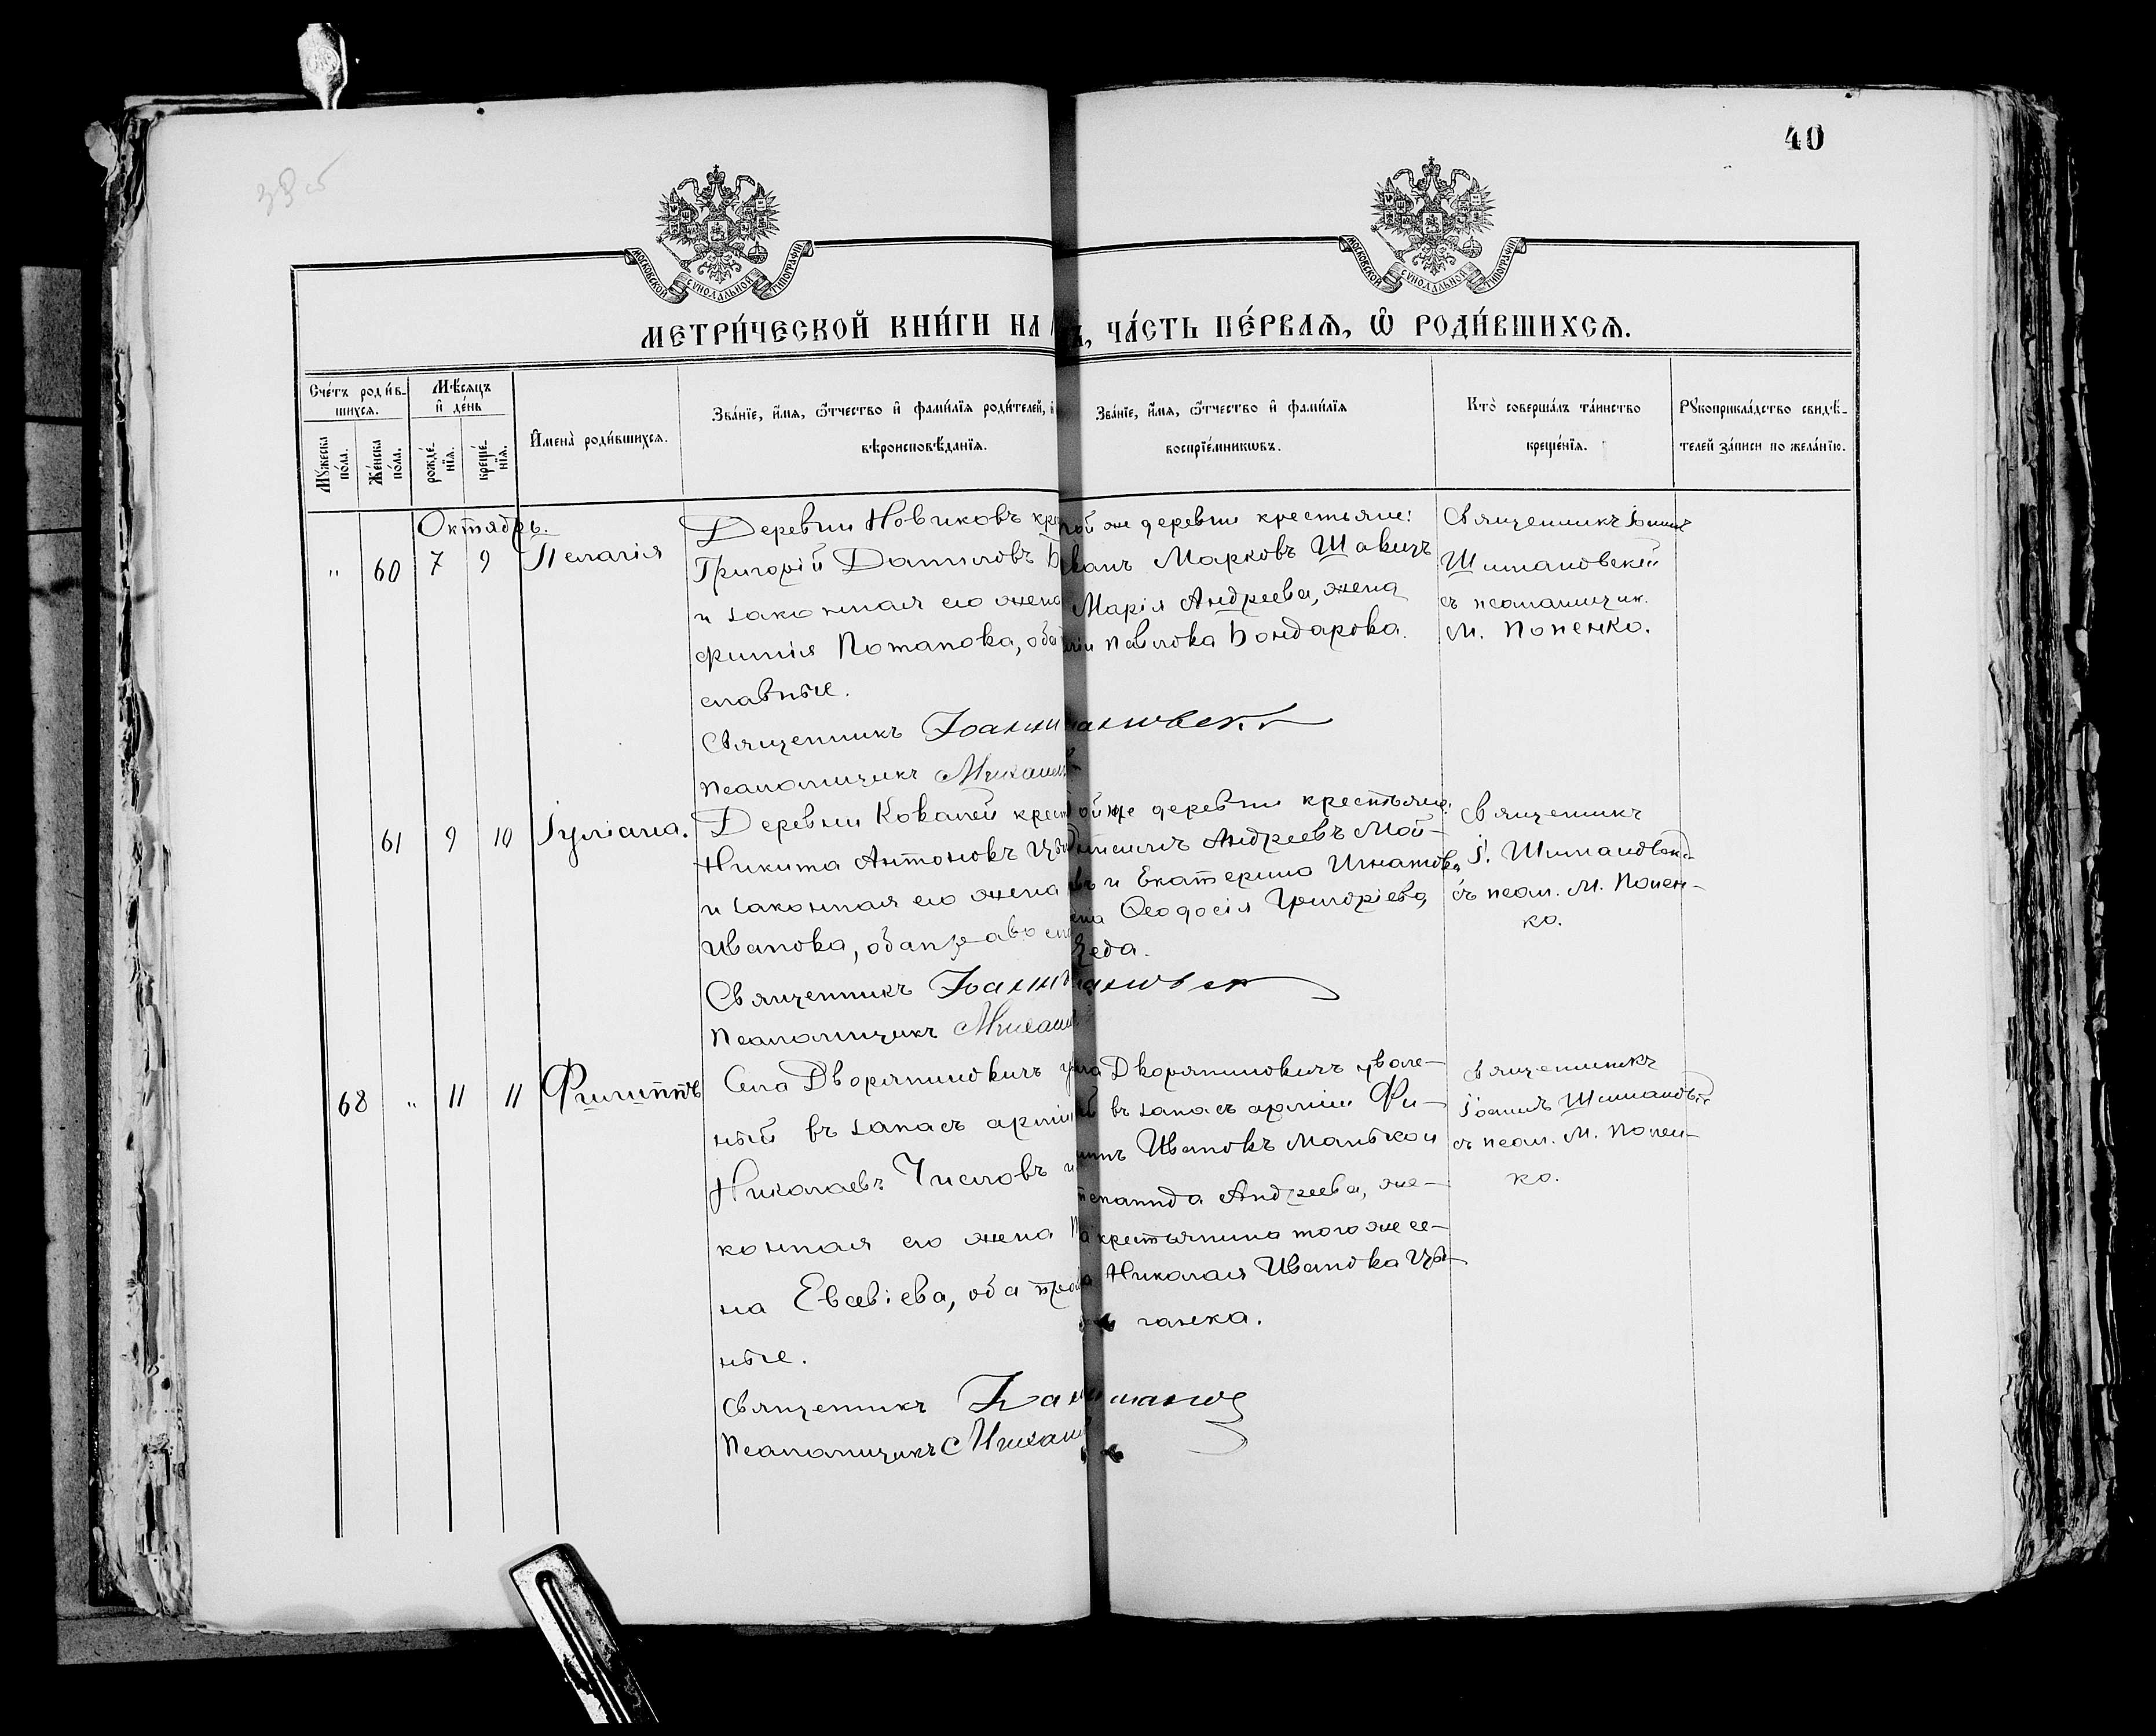 40
МОСКОВСКОЙ СУНОДАЛЬНОЙ ТИПОГРАФІИ
МОСКОВСКОЙ СУНОДАЛЬНОЙ ТИПОГРАФІИ
МЕТРИ́ЧЕСКОЙ КНИ́ГИ НА
, ЧА́СТЬ ПЕ́РВАѦ, Ѽ РОДИ́ВШИХСѦ.
Сче́тъ роди́в-
шихсѧ.
Мѣ́сѧцъ
и҆ де́нь
Мꙋ́жеска
по́ла.
Же́нска
по́ла.
рожде́-
нїѧ.
креще́-
нїѧ.
И҆мена̀ роди́вшихсѧ.
Зва́нїе, и҆́мѧ, ѻ҆́тчество и҆ фами́лїѧ роди́телей, и҆
вѣроисповѣ́данїѧ.
Зва́нїе, и҆́мѧ, ѻ҆́тчество и҆ фами́лїѧ
воспрїе́мникѡвъ.
Кто̀ соверша́лъ та́инство
креще́нїѧ.
Рꙋкоприкла́дство свидѣ́-
телей за́писи по жела́нїю.
Октябрь.
" 60 7 9 Пелагія
Деревни Новиковъ кре
Григорій Даниловъ
и законная его жена
фимія Потапова, оба
славные.
Священникъ Іоанн
Псаломщикъ Михаил
той же деревни крестьяне:
Иванъ Марковъ Шавель
Марія Андреева, жена
Павлова Бондарова.
Священникъ Іоаннъ
Шимановскій
съ псаломщик.
М. Попенко.
61 9 10 Іуліана.
Деревни Ковалей крест
Никита Антоновъ
и законная его жена
Иванова, оба правосла
Священникъ Іоанн
Псаломщикъ Михаил
той же деревни крестьяне:
Андреевъ Мой-
и Екатерина Игнатова
Ѳеодосія Григоріева
Священникъ
І. Шимановскі
съ псал. М. Попен-
ко.
68 " 11 11 Филиппъ
Села Дворяниновичъ у
ный въ запасъ арміи
Николаевъ Числовъ и
конная его жена
на Евсевіева, оба прав
ные.
Священникъ
Псаломщикъ Михаил
Дворяниновичъ уволе-
въ запасъ арміи Фи-
Ивановъ
Андреева, же-
крестьянина того же се-
Николая Иванова Цы-
ганка.
Священникъ
Іоаннъ Шимановск
съ псал. М. Попен-
ко.